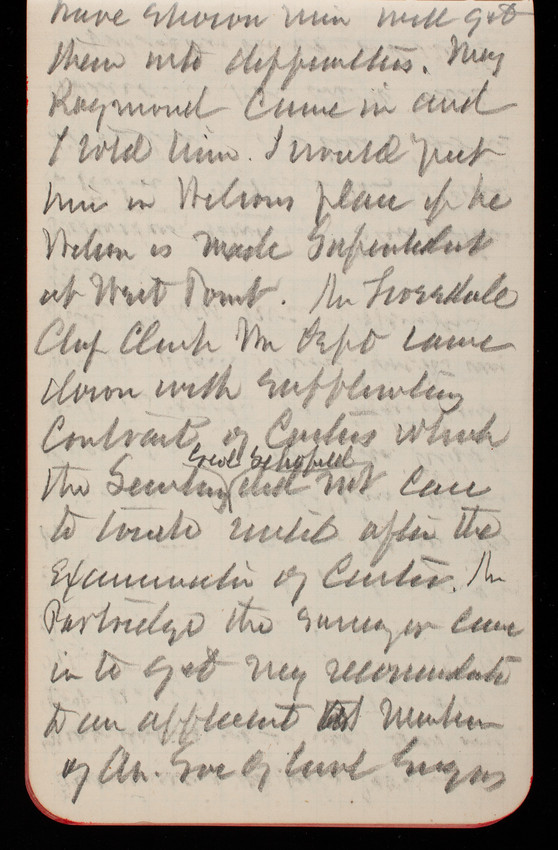 have shown him will get
them into difficulties. Maj
Raymond came in and
I told him. I would put
him in Wilsons place if he
Wilson is made Suptendent
at West Point. Mr
Clef Clerk Wm Dept came
down with
Contract of Carters which
Genl Schofield
the Secretary did not care
to touch until after the
Examination of Carter. Mr
Partridge the surveyor came
in to get my recomendate
to an applicant Member
of Am. Soc of Civil Engrs